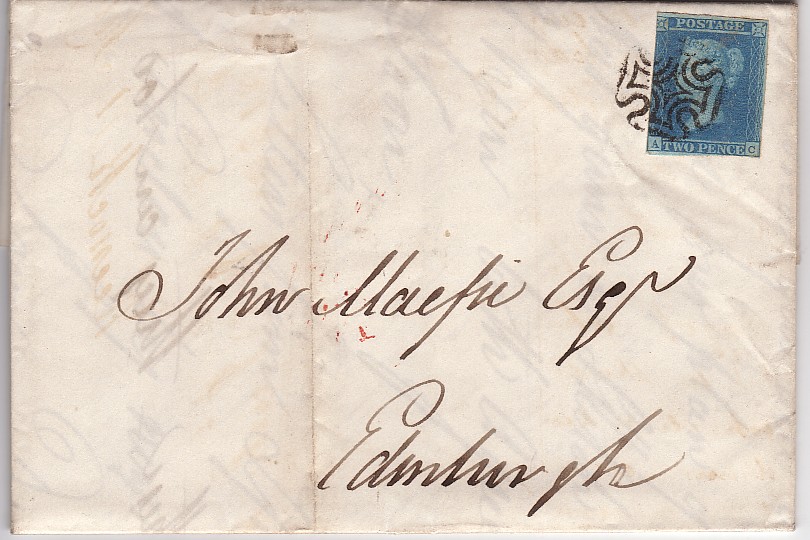 POSTAGE
A TWO PENCE C
John Macfie Esqr
Edinburgh